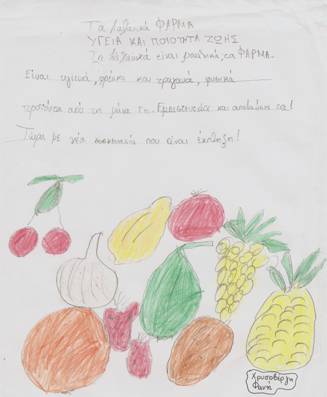 Τα λαχανικά ΦΑΡΜΑ
ΥΓΕΙΑ ΚΑΙ ΠΟΙΟΤΗΤΑ ΖΩΗΣ
Τα λαχανικά είναι μοναδικά, τα ΦΑΡΜΑ.
Είναι υγιεινά, φρέσκα και τραγανά, φυσικά
προϊόντα από τη μάνα γη. Εμπιστευτείτε και απολαύστε τα!
Τώρα με νέα συσκευασία που είναι έκπληξη!
Χρυσοβέργη
Φανή